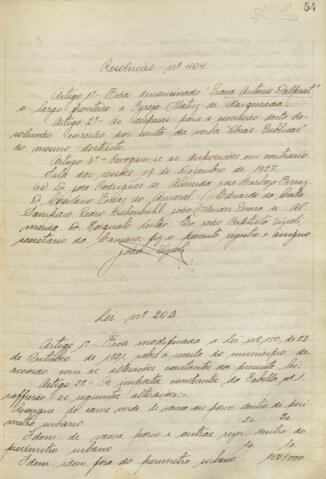 54
Resolução nº 404
Artigo 1º Fica denominado "Praça Antonio Dalprat"
o largo fronteiro a Egreja Matriz de Charqueada.
Artigo 2º As despezas para a execução desta de
solução correrão por conta da verba "Obras Publicas"
do mesmo districto.
Artigo 3º Revogam-se as disposições em contrario
Sala das sessões 19 de Dezembro de 1927.
(a) D. José Rodrigues de Almeida, José Barbosa Ferraz
de Amaral, Eduardo da Costa
Sampaio, Pedro Krähenbühl, João Pinto de Al
meida, D. Torquato Leitão. Eu João Baptista Vizioli,
secretario da Camara fiz o presente registro e assigno
João Vizioli
Lei nº 203
Artigo 1º Fica modificada a Lei nº 170, de 28
de Outubro de 1921, sobre a receita do municipio, de
accordo com as alterações constantes da presente lei.
Artigo 2º Os impostos constantes da Tabella nº 1
soffrerão as seguintes alterações:
Açougue de carne verde de vacca ou porco dentro do peri
metro urbano
Idem de vacca, porco e outras rezes dentro do
perimetro urbano
Idem idem fóra do perimetro urbano 150$000